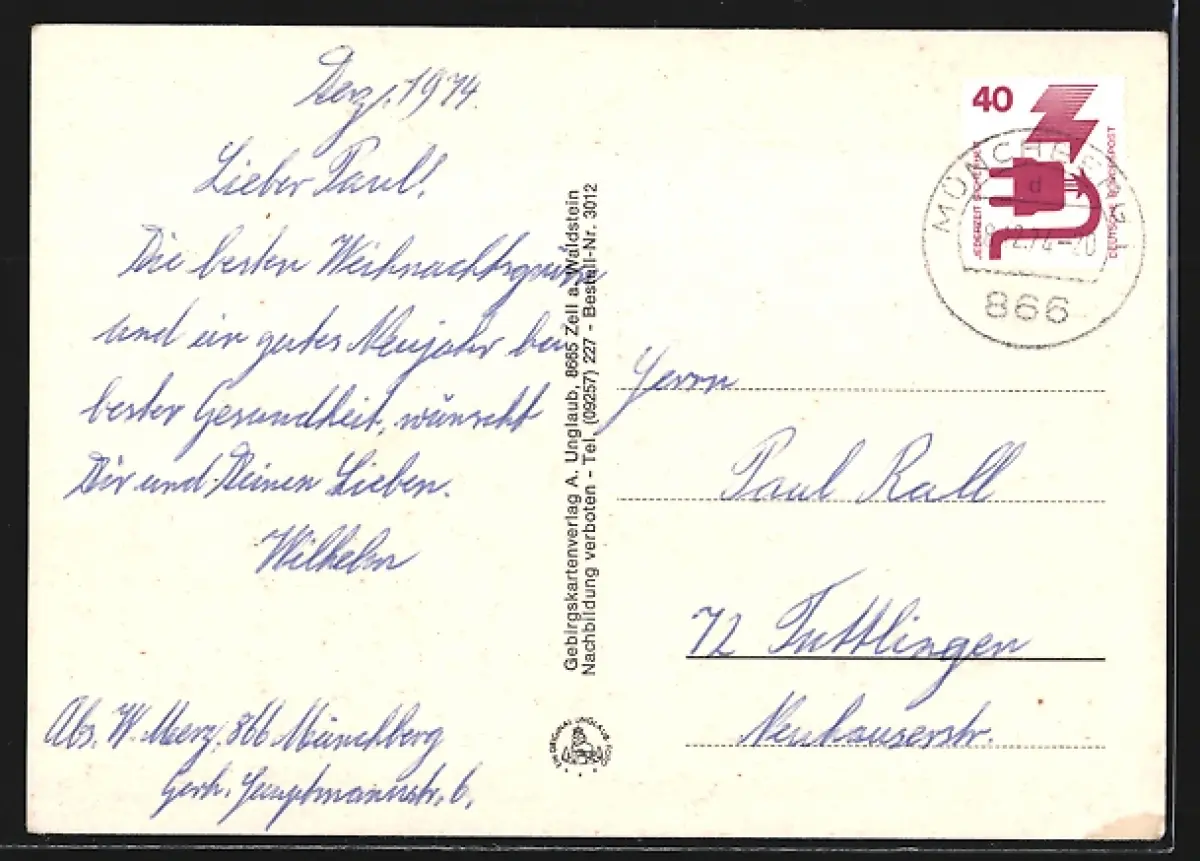 Dez. 1974.
Lieber Paul!
Die besten Weihnachtsgrüsse
und ein gutes Neujahr bei
bester Gesundheit, wünscht
Dir und Deinen Lieben.
Wilhelm
Abs. W. Merz, 866 Münchberg
Gerh. Hauptmannstr. 6.
Gebirgskartenverlag A. Unglaub, 8665 Zell a. Waldstein
Nachbildung verboten - Tel. (09257) 227 - Bestell-Nr. 3012
EIN ORIGINAL UNGLAUB FOTO
40
JEDERZEIT SICHERHEIT
DEUTSCHE BUNDESPOST
MÜNCHBERG 1
d
12.74-20
866
Herrn
Paul Rall
72 Tuttlingen
Neuhauserstr.